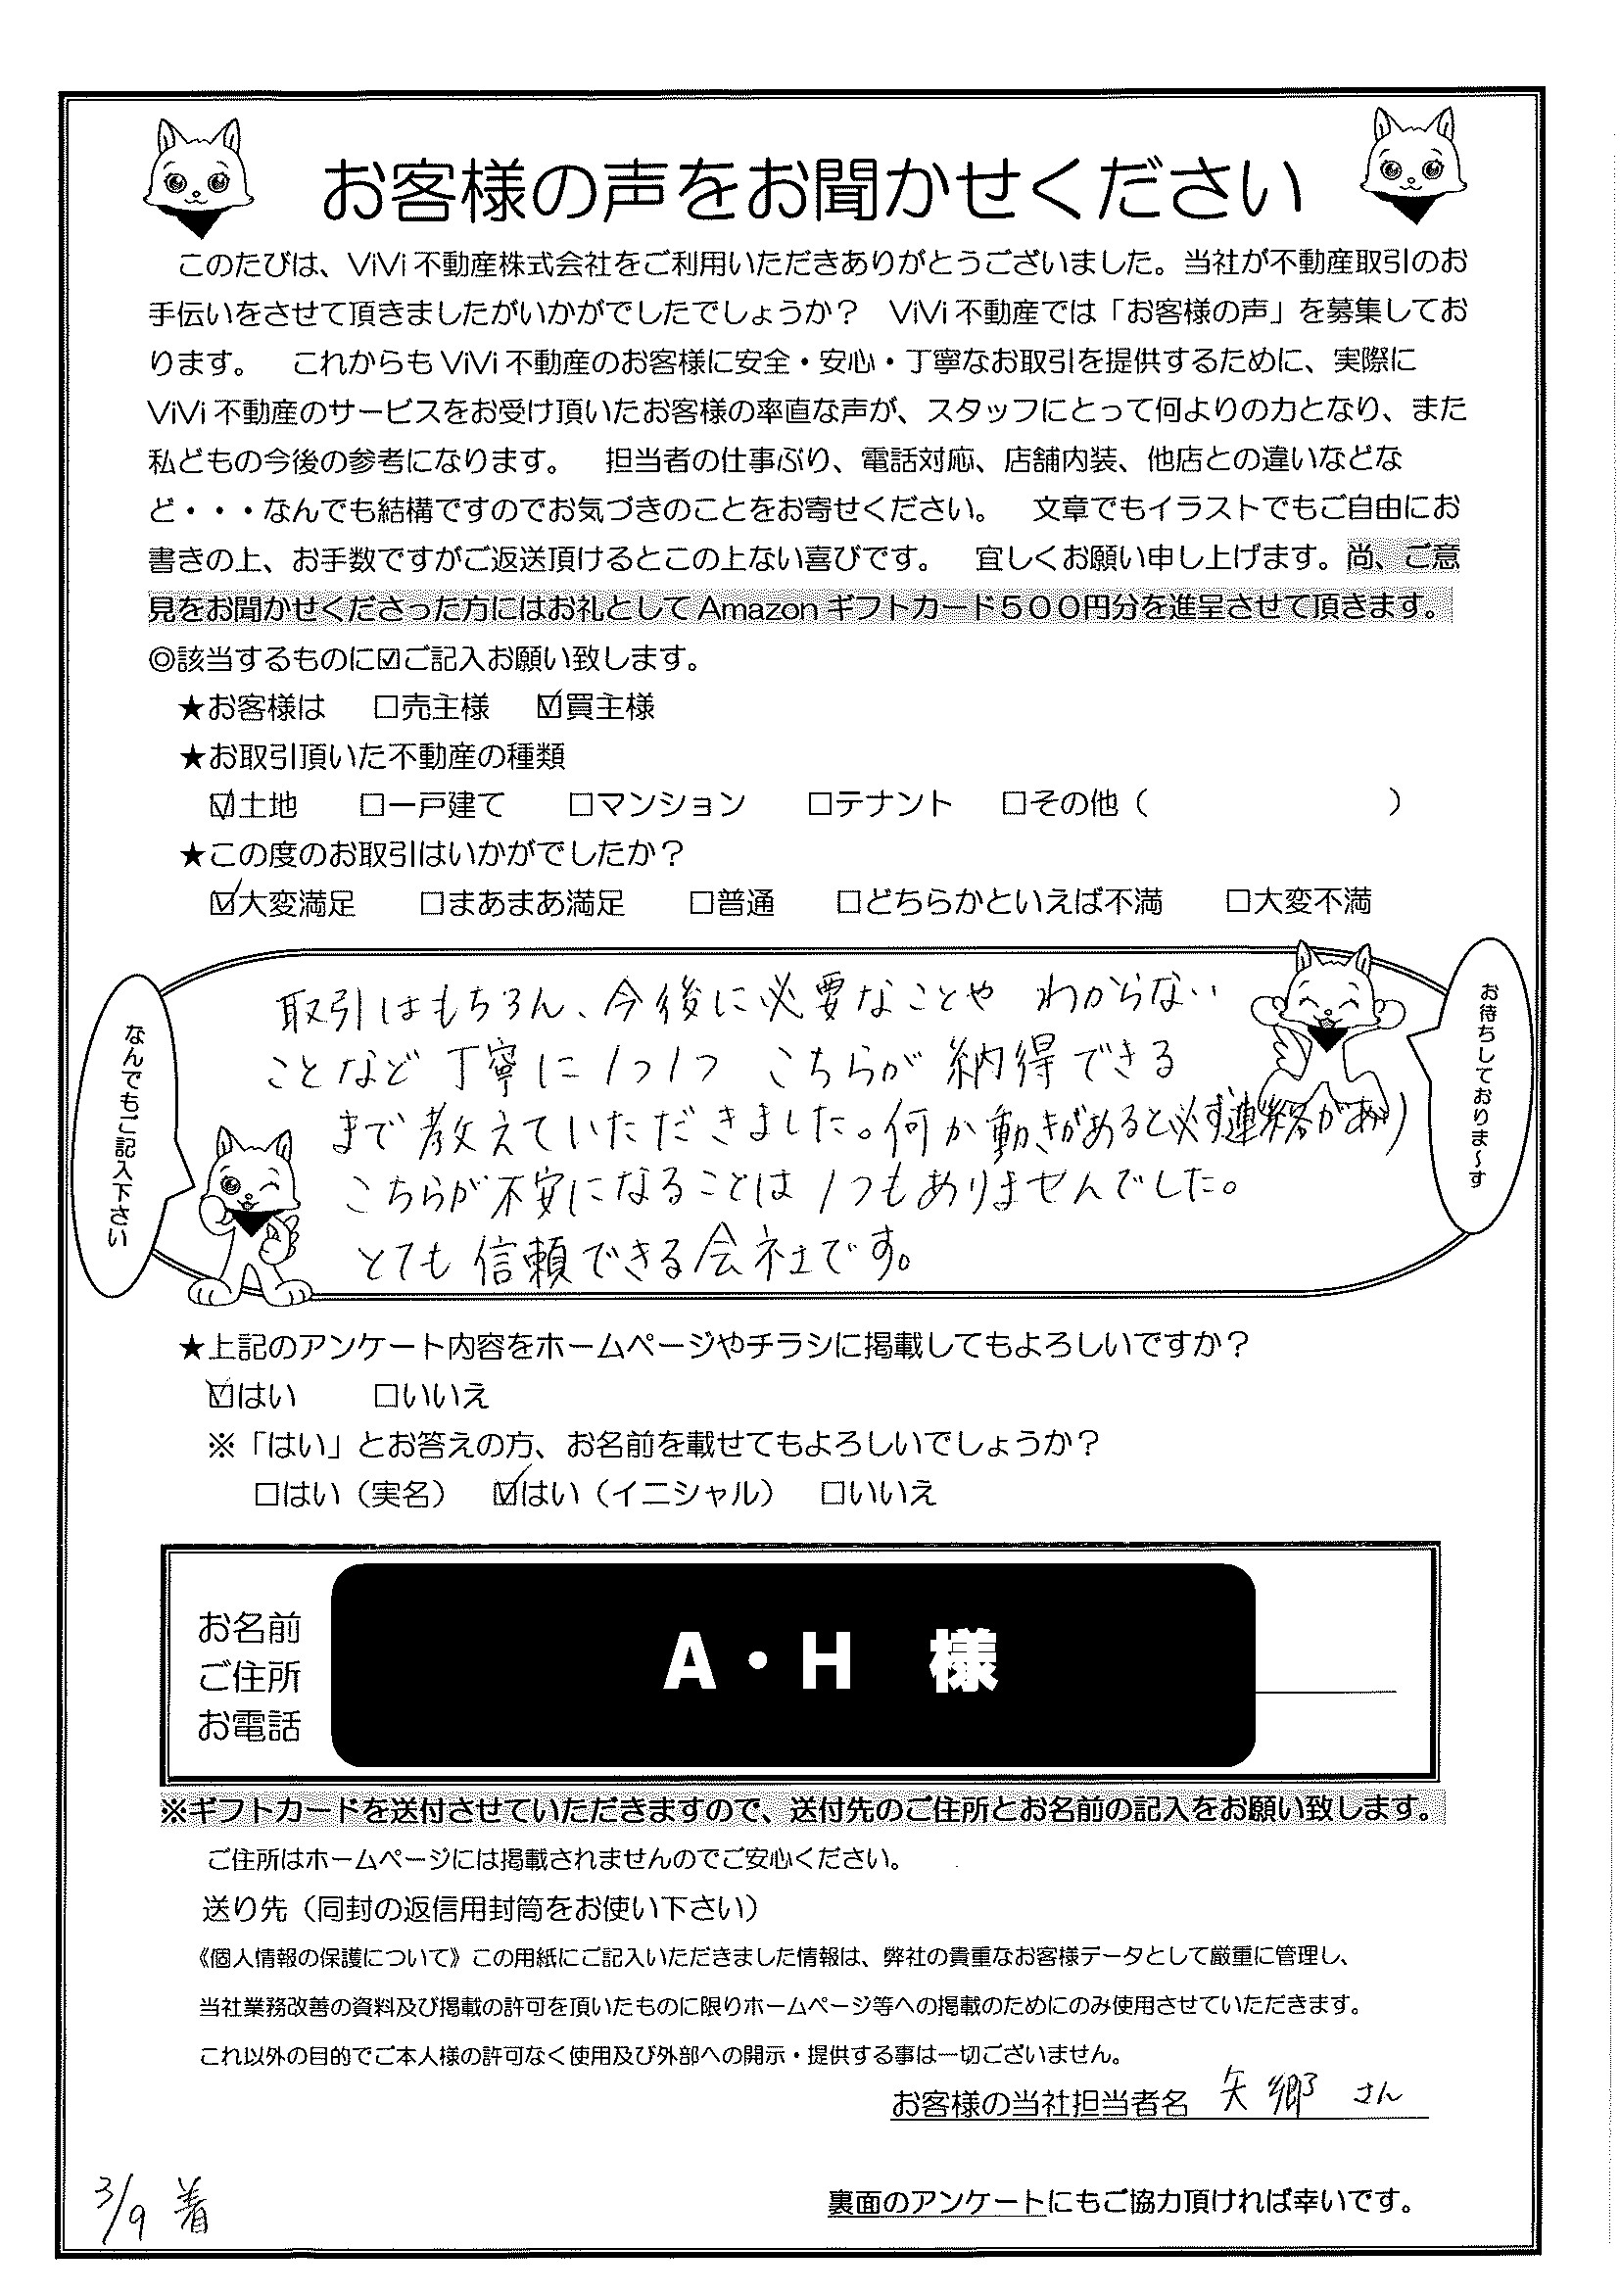 お客様の声をお聞かせください
このたびは、ViVi不動産株式会社をご利用いただきありがとうございました。当社が不動産取引のお
手伝いをさせて頂きましたがいかがでしたでしょうか？　ViVi不動産では「お客様の声」を募集してお
ります。　これからもViVi不動産のお客様に安全・安心・丁寧なお取引を提供するために、実際に
ViVi不動産のサービスをお受け頂いたお客様の率直な声が、スタッフにとって何よりの力となり、また
私どもの今後の参考になります。　担当者の仕事ぶり、電話対応、店舗内装、他店との違いなどな
ど・・・なんでも結構ですのでお気づきのことをお寄せください。　文章でもイラストでもご自由にお
書きの上、お手数ですがご返送頂けるとこの上ない喜びです。　宜しくお願い申し上げます。尚、ご意
見をお聞かせくださった方にはお礼としてAmazonギフトカード５００円分を進呈させて頂きます。
◎該当するものに☑ご記入お願い致します。
★お客様は　□売主様　☑買主様
★お取引頂いた不動産の種類
☑土地　□一戸建て　□マンション　□テナント　□その他（　　　）
★この度のお取引はいかがでしたか？
☑大変満足　□まあまあ満足　□普通　□どちらかといえば不満　□大変不満
なんでもご記入下さい
お待ちしておりま～す
取引はもちろん、今後に必要なことや わからない
ことなど 丁寧に1つ1つ こちらが 納得できる
まで教えていただきました。何か動きがあると必ず連絡があり
こちらが不安になることは1つもありませんでした。
とても信頼できる会社です。
★上記のアンケート内容をホームページやチラシに掲載してもよろしいですか？
☑はい　□いいえ
※「はい」とお答えの方、お名前を載せてもよろしいでしょうか？
□はい（実名）　☑はい（イニシャル）　□いいえ
お名前
ご住所
お電話
A・H　様
※ギフトカードを送付させていただきますので、送付先のご住所とお名前の記入をお願い致します。
ご住所はホームページには掲載されませんのでご安心ください。
送り先（同封の返信用封筒をお使い下さい）
《個人情報の保護について》この用紙にご記入いただきました情報は、弊社の貴重なお客様データとして厳重に管理し、
当社業務改善の資料及び掲載の許可を頂いたものに限りホームページ等への掲載のためにのみ使用させていただきます。
これ以外の目的でご本人様の許可なく使用及び外部への開示・提供する事は一切ございません。
お客様の当社担当者名　矢郷 さん
3/9 着
裏面のアンケートにもご協力頂ければ幸いです。